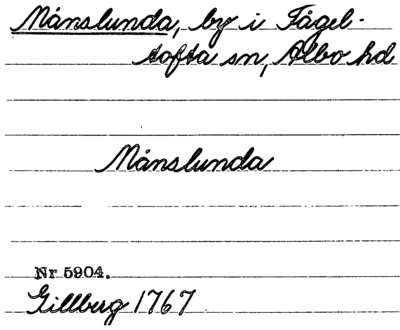 Månslunda, by i Fågel-
tofta sn, Albo hd
Månslunda
Nr 5904.
Gillberg 1767